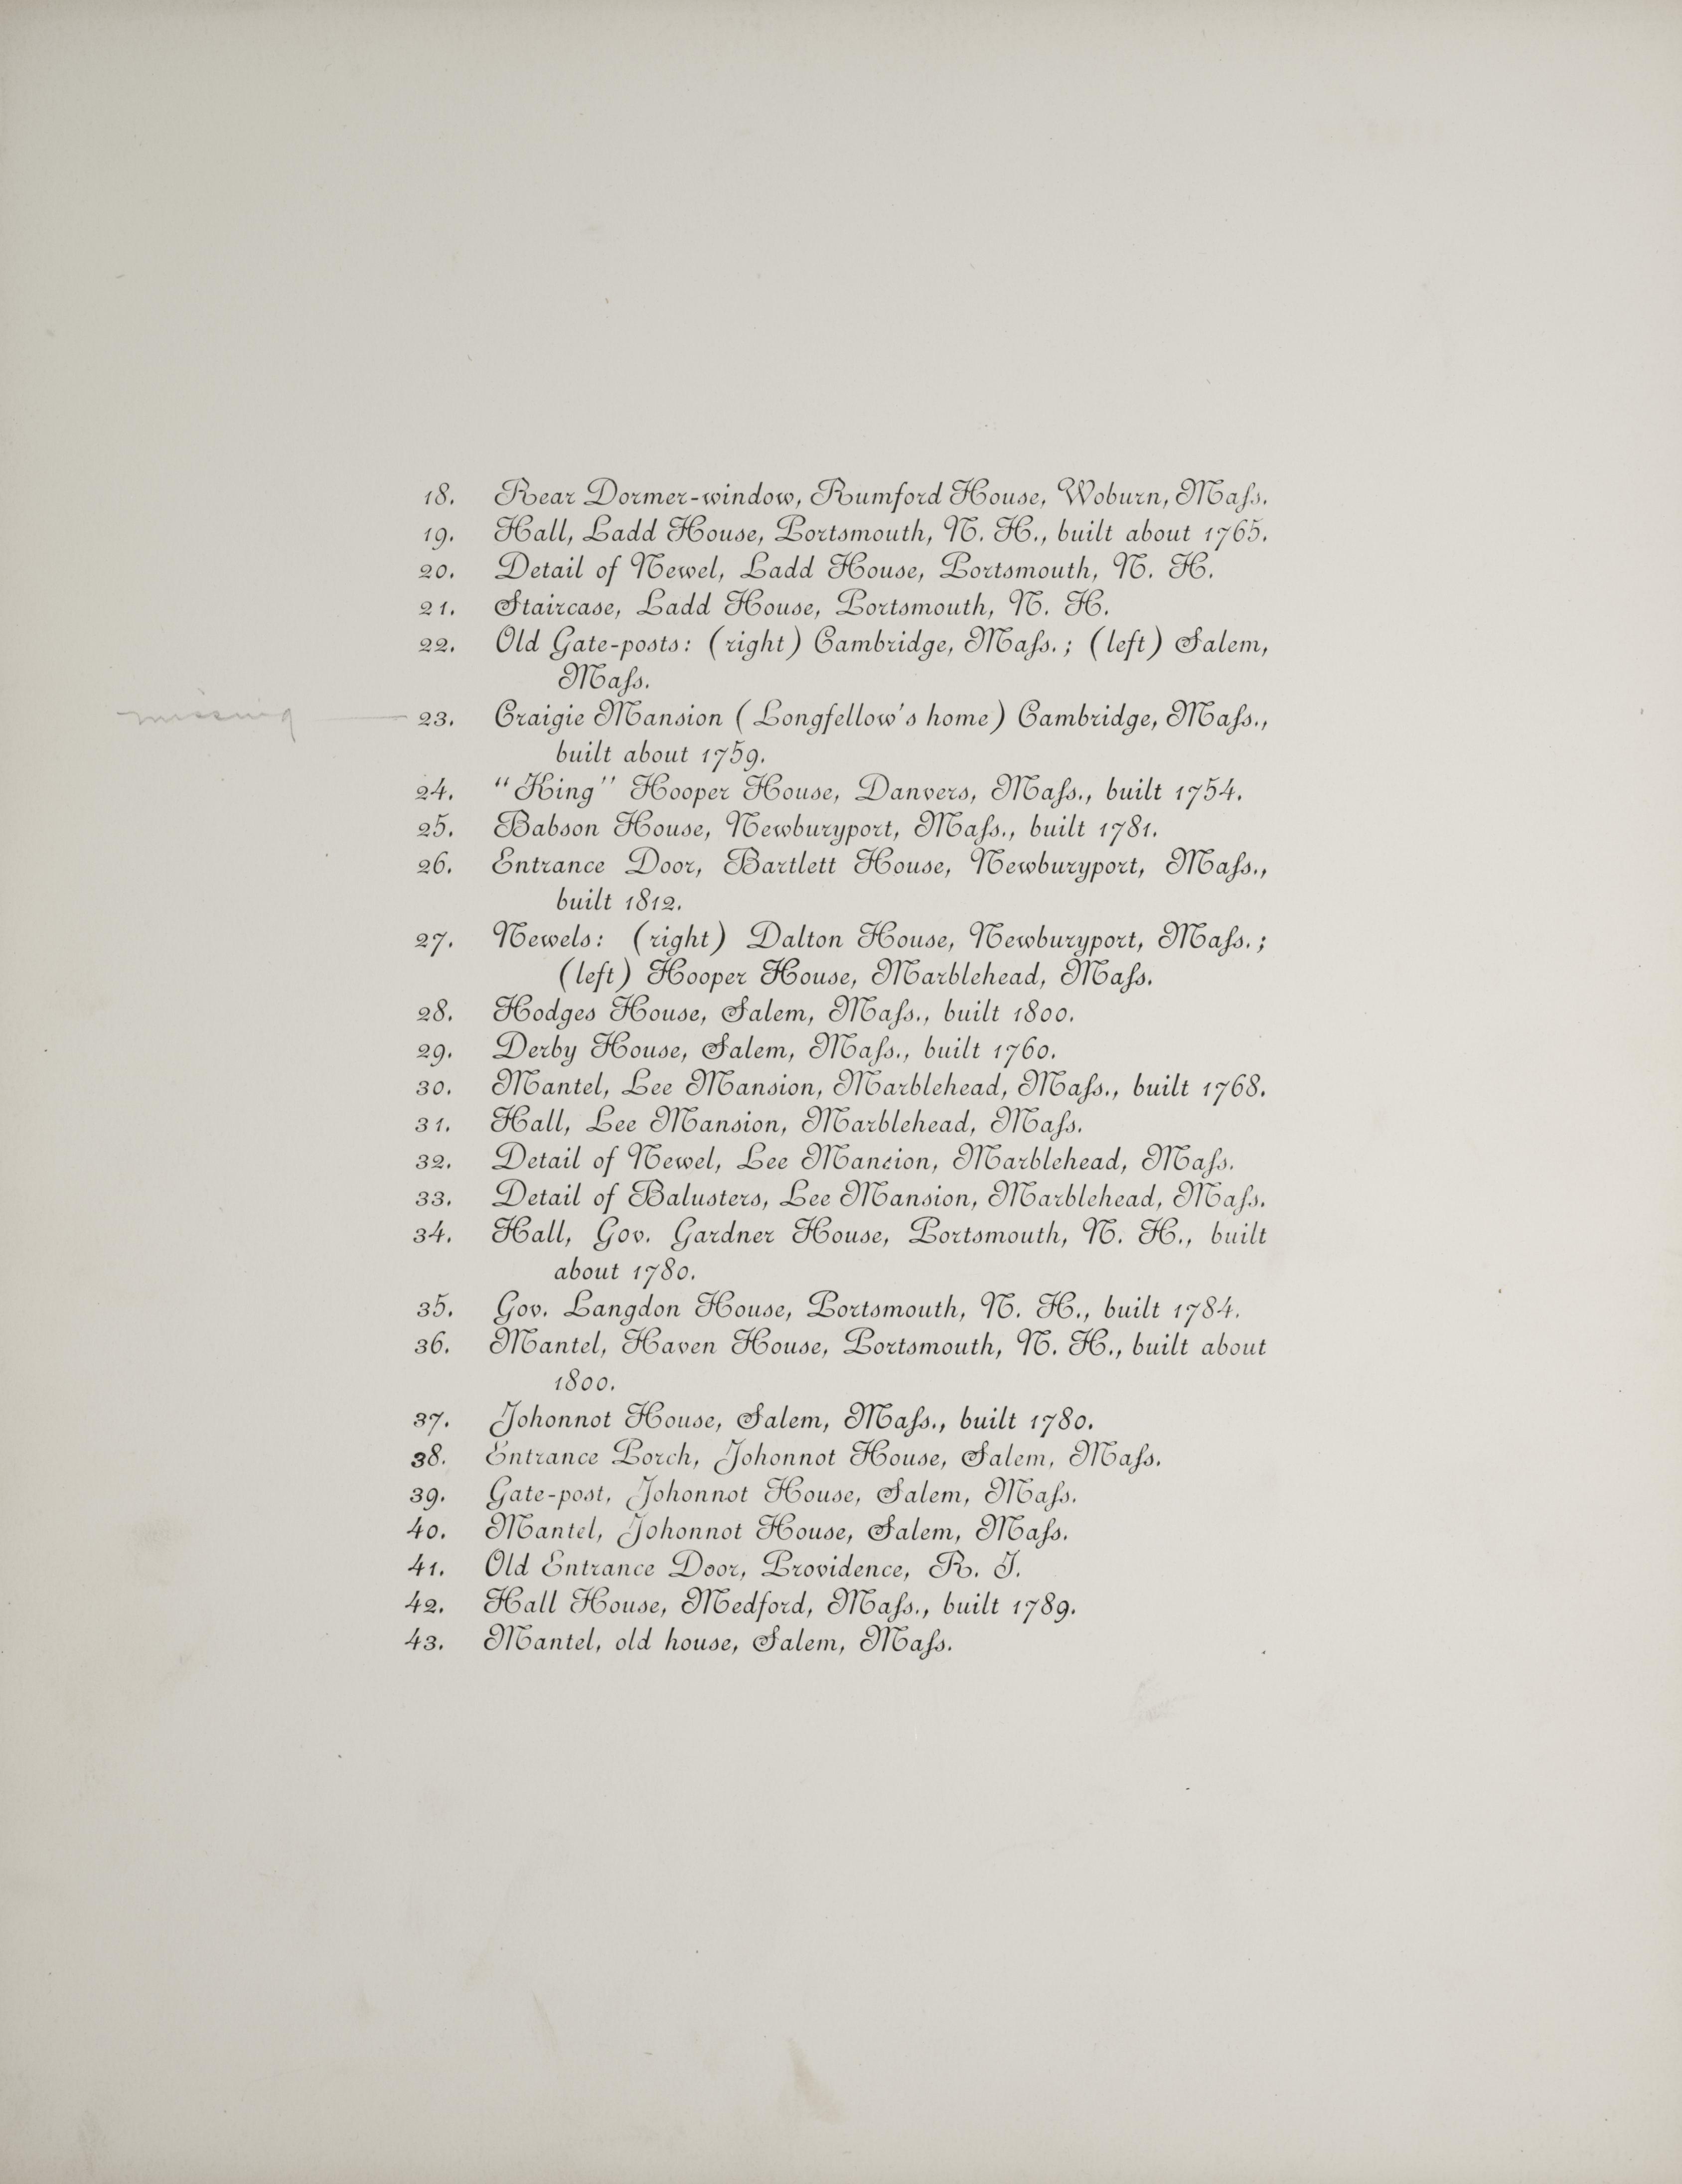 18. Rear Dormer-window, Rumford House, Woburn, Maſs.
19. Hall, Ladd House, Portsmouth, N. H., built about 1765.
20. Detail of Newel, Ladd House, Portsmouth, N. H.
21. Staircase, Ladd House, Portsmouth, N. H.
22. Old Gate-posts: (right) Cambridge, Maſs.; (left) Salem,
Maſs.
missing — 23. Craigie Mansion (Longfellow's home) Cambridge, Maſs.,
built about 1759.
24. "King" Hooper House, Danvers, Maſs., built 1754.
25. Babson House, Newburyport, Maſs., built 1781.
26. Entrance Door, Bartlett House, Newburyport, Maſs.,
built 1812.
27. Newels: (right) Dalton House, Newburyport, Maſs.;
(left) Hooper House, Marblehead, Maſs.
28. Hodges House, Salem, Maſs., built 1800.
29. Derby House, Salem, Maſs., built 1760.
30. Mantel, Lee Mansion, Marblehead, Maſs., built 1768.
31. Hall, Lee Mansion, Marblehead, Maſs.
32. Detail of Newel, Lee Mansion, Marblehead, Maſs.
33. Detail of Balusters, Lee Mansion, Marblehead, Maſs.
34. Hall, Gov. Gardner House, Portsmouth, N. H., built
about 1780.
35. Gov. Langdon House, Portsmouth, N. H., built 1784.
36. Mantel, Haven House, Portsmouth, N. H., built about
1800.
37. Johonnot House, Salem, Maſs., built 1780.
38. Entrance Porch, Johonnot House, Salem, Maſs.
39. Gate-post, Johonnot House, Salem, Maſs.
40. Mantel, Johonnot House, Salem, Maſs.
41. Old Entrance Door, Providence, R. I.
42. Hall House, Medford, Maſs., built 1789.
43. Mantel, old house, Salem, Maſs.